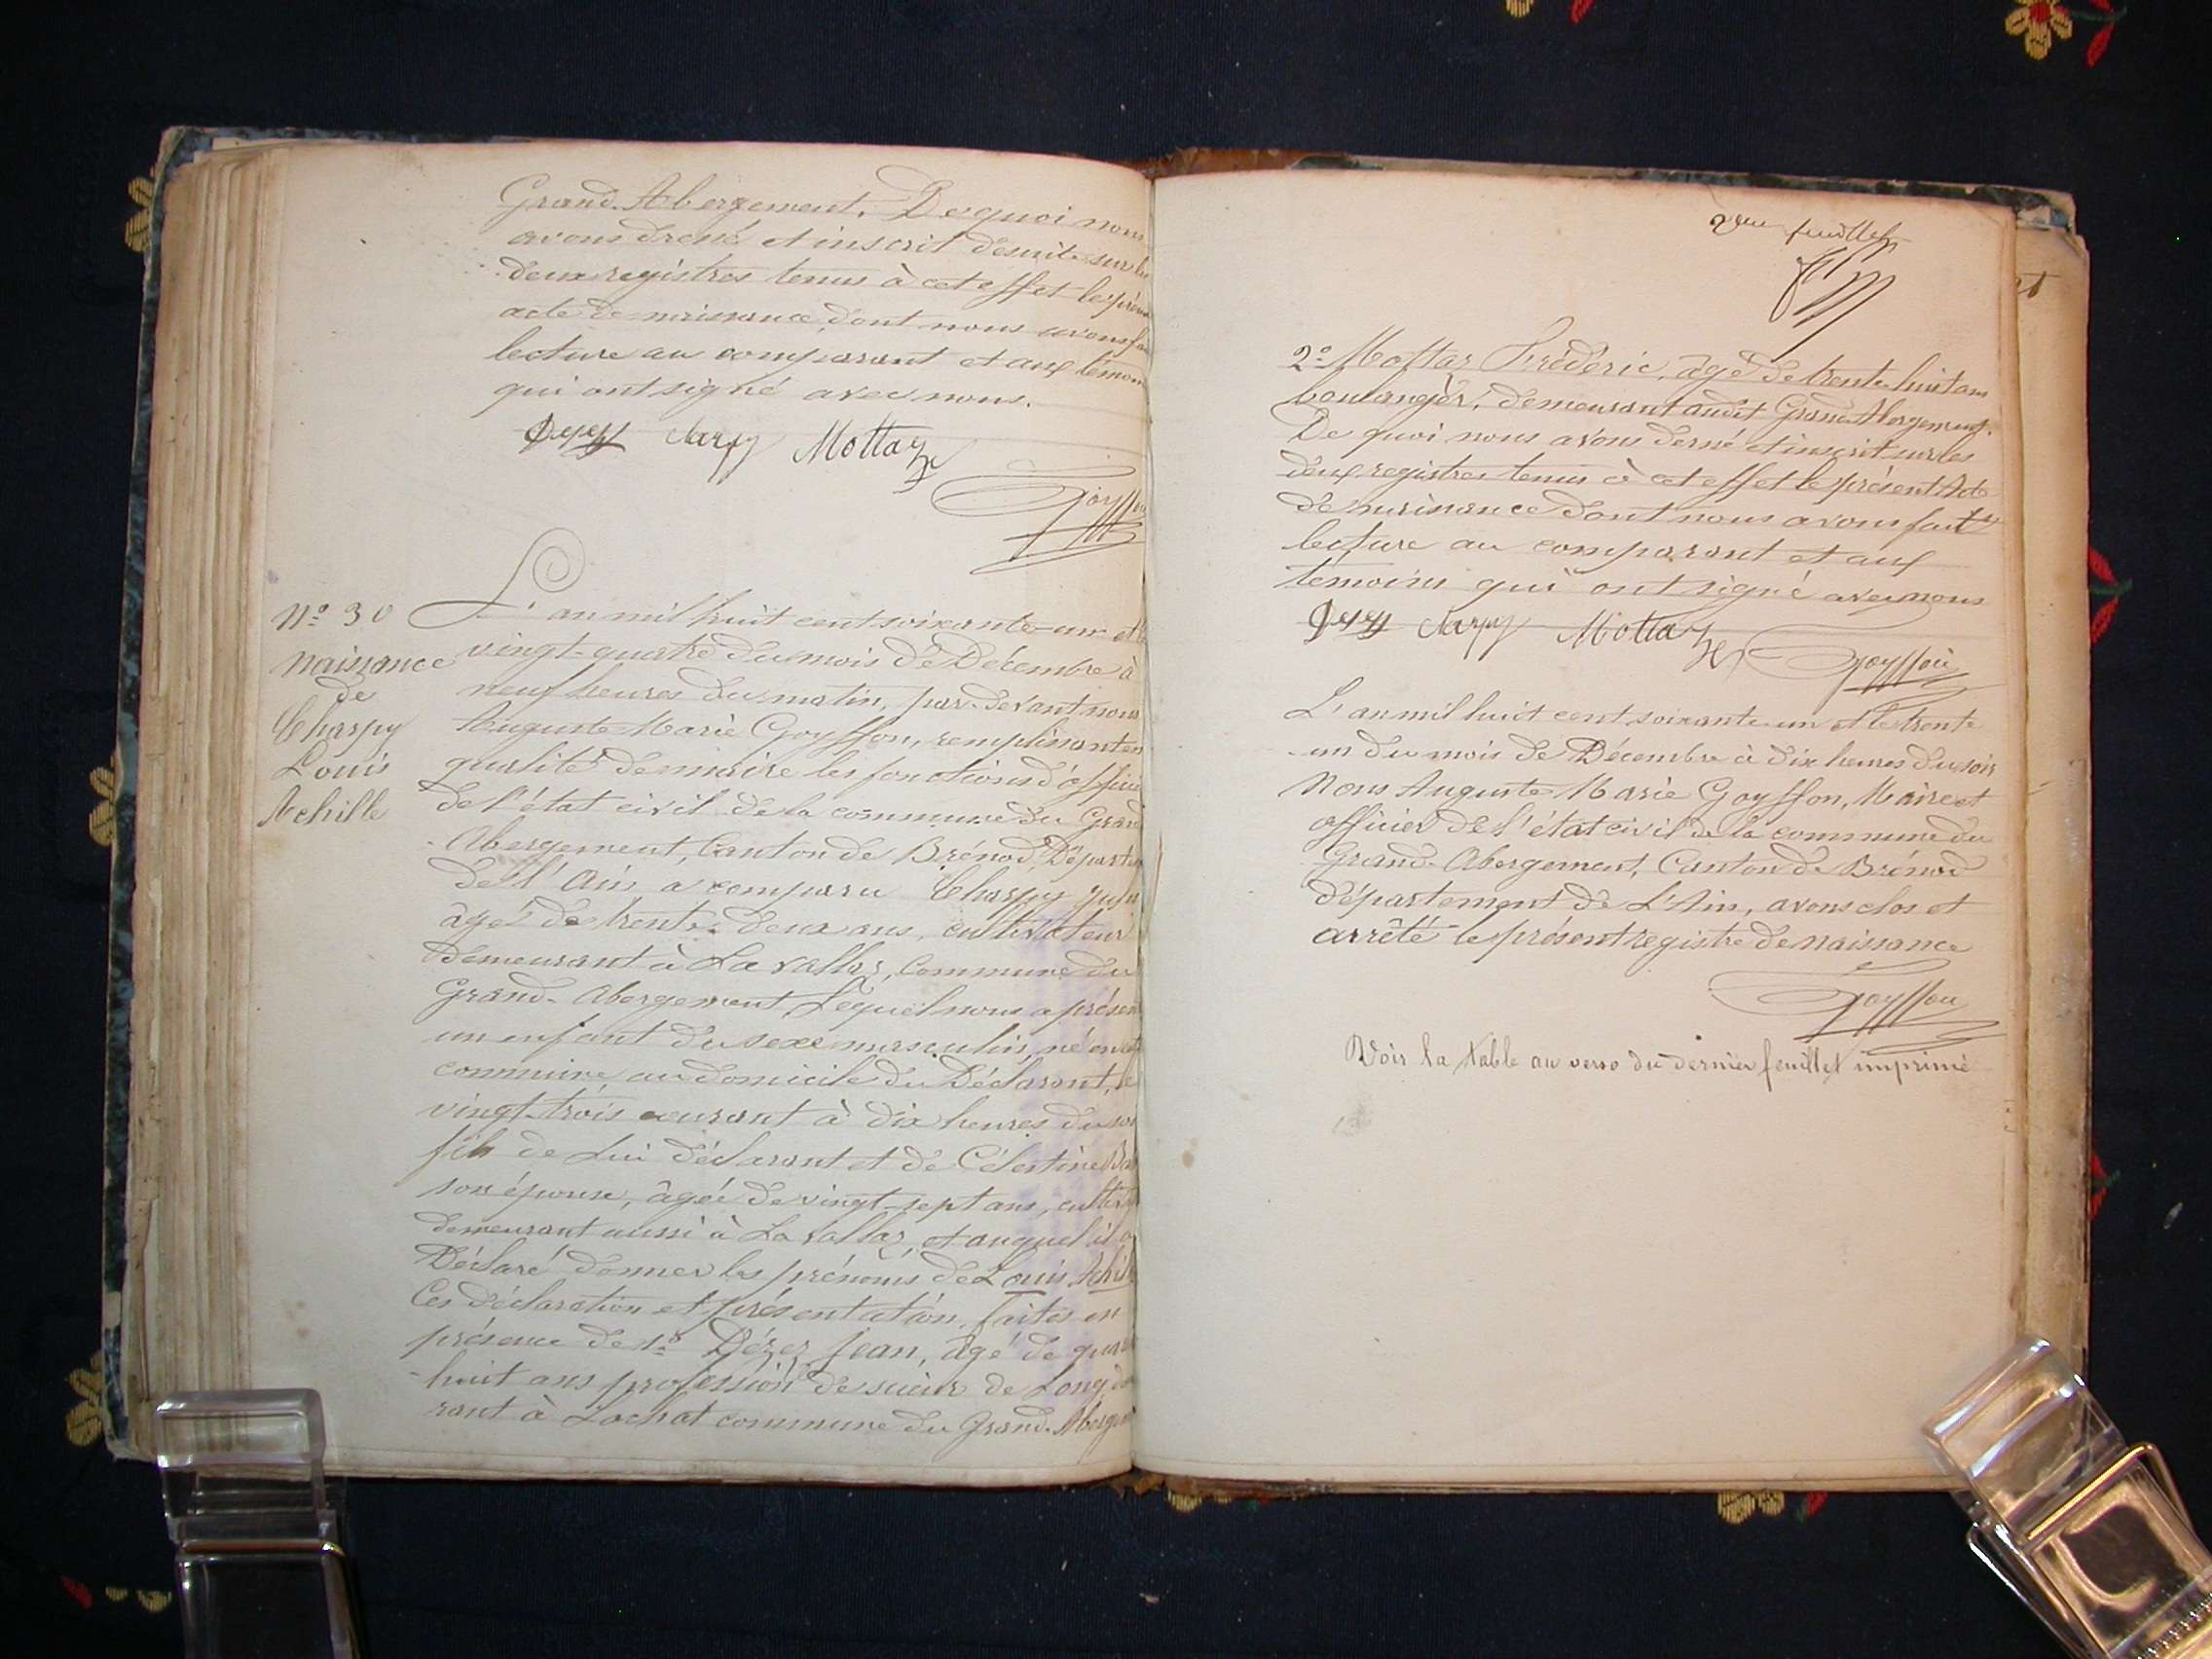 Grand-Abergement. De quoi nous
avons dressé et inscrit desuite sur les
deux registres tenus à cet effet le prés
acte de naissance, dont nous avons fai
lecture au comparant et aux témoin
qui ont signé avec nous.
Mottaz
Goyffon
N° 30
Naissance
de
Charpy
Louis
Achille
L'an mil huit cent soixante-un et le
vingt-quatre du mois de Décembre à
neuf heures du matin, par-devant nous
Auguste Marie Goyffon, remplissant en
qualité de maire les fonctions d'officie
de l'état civil de la commune du Grand
Abergement, Canton de Brénod, Départem
de l'Ain a comparu Charpy
âgé de trente-deux ans, cultivateur
demeurant à La vallaz, commune du
Grand-Abergement Lequel nous a présen
un enfant du sexe masculin, né en cette
commune au domicile du Déclarant, le
vingt-trois courant à dix heures du soi
fils de Lui déclarant et de Célestine
son épouse, âgée de vingt-sept ans, cultiv
demeurant aussi à La vallaz, et auquel il a
Déclaré donner les prénoms de Louis Achill
Ces déclaration et présentation faites en
présence de 1° Dézez Jean, âgé de quara
huit ans profession de scieur de Long, de
rant à Lachat commune du Grand-Abergem
2me feuillet
2° Mottaz Frédéric, âgé de trente huit ans
boulanger, demeurant audit Grand-Abergement.
De quoi nous avons dressé et inscrit sur les
deux registres tenus à cet effet le présent Acte
de naissance dont nous avons fait
lecture au comparant et aux
témoins qui ont signé avec nous
Mottaz
Goyffon
L'an mil huit cent soixante un et le trente
un du mois de Décembre à dix heures du soir
Nous Auguste Marie Goyffon, Maire et
officier de l'état civil de la commune du
Grand-Abergement, Canton de Brénod
département de L'Ain, avons clos et
arrêté le présent registre de naissance
Goyffon
Voir la table au verso du dernier feuillet imprimé